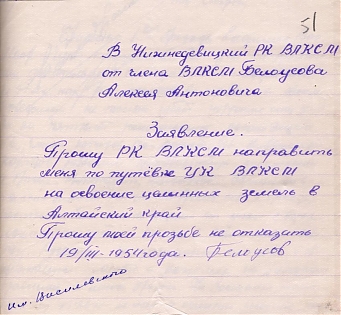 51
В Нижнедевицкий РК ВЛКСМ
от члена ВЛКСМ Белоусова
Алексея Антоновича
Заявление.
Прошу РК ВЛКСМ направить
меня по путёвке ЦК ВЛКСМ
на освоение целинных земель в
Алтайский край
Прошу моей прозьбе не отказать
19/III-1954 года. Белоусов
им. Василевского